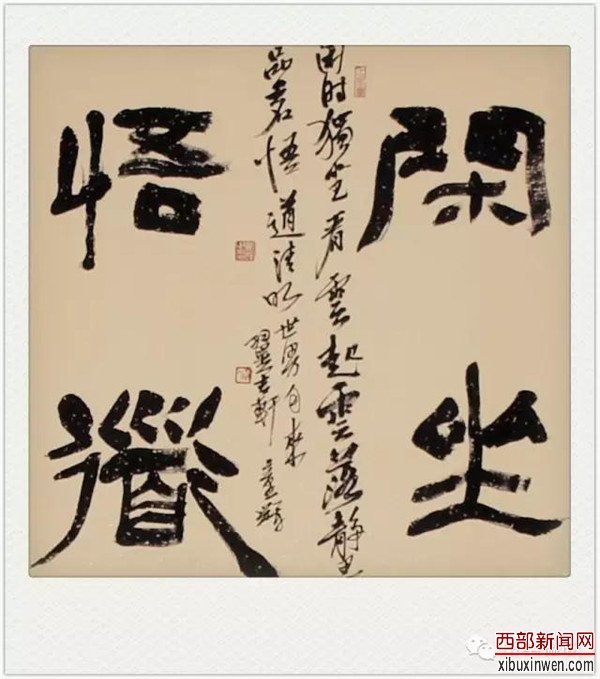 閑坐
閑时獨坐看雲起雲落靜
品茗悟道清明世界自來
軒
悟道
西部新闻网
xibuxinwen.com